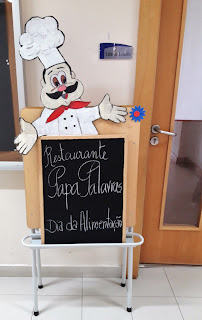 Restaurante
Papa Palavras
Dia da Alimentação